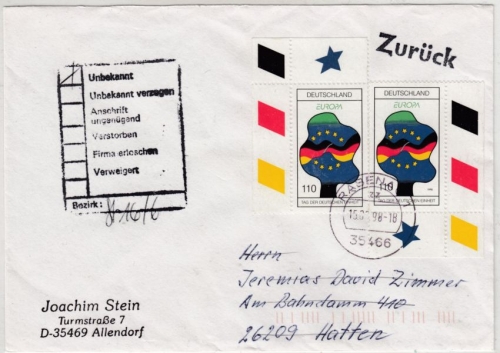 Zurück
Unbekannt
Unbekannt verzogen
Anschrift
ungenügend
Verstorben
Firma erloschen
Verweigert
Bezirk:
DEUTSCHLAND
EUROPA
110
TAG DER DEUTSCHEN EINHEIT
DEUTSCHLAND
EUROPA
110
TAG DER DEUTSCHEN EINHEIT
35466
Herrn
Jeremias David Zimmer
Am Bahndamm 410
26209 Hatten
Joachim Stein
Turmstraße 7
D-35469 Allendorf